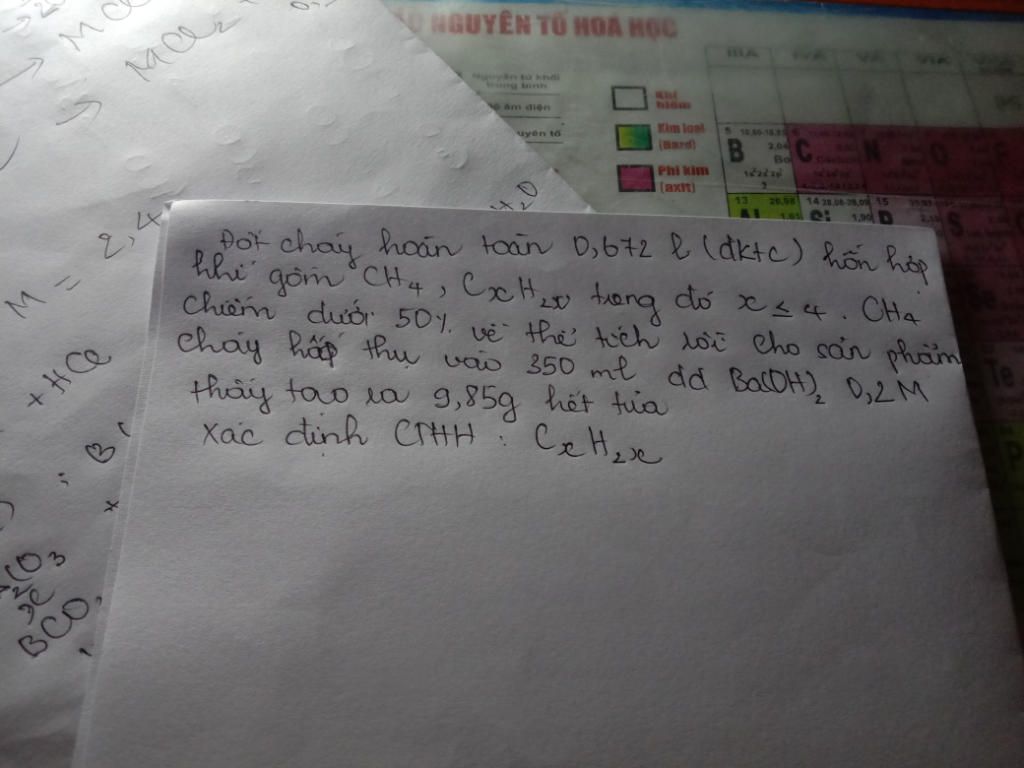 NGUYÊN TỐ HOÁ HỌC
IIIA IVA VA VIA
Nguyên tử khối
trung bình
độ âm điện
Khí
hiếm
Kim loại
(Bazơ)
Phi kim
(axit)
B
C
N
O
F
13 26,98
14
15
Al
Si
S
Te
M Cl
→ MCl₂
H₂O
M = 2,4
+ HCl
BCO
Đốt cháy hoàn toàn 0,672 l (đktc) hỗn hợp
khí gồm CH₄, CxH₂x trong đó x ≤ 4. CH₄
chiếm dưới 50% về thể tích rồi cho sản phẩm
cháy hấp thụ vào 350 ml dd Ba(OH)₂ 0,2M
thấy tạo ra 9,85g kết tủa
Xác định CTHH : CxH₂x